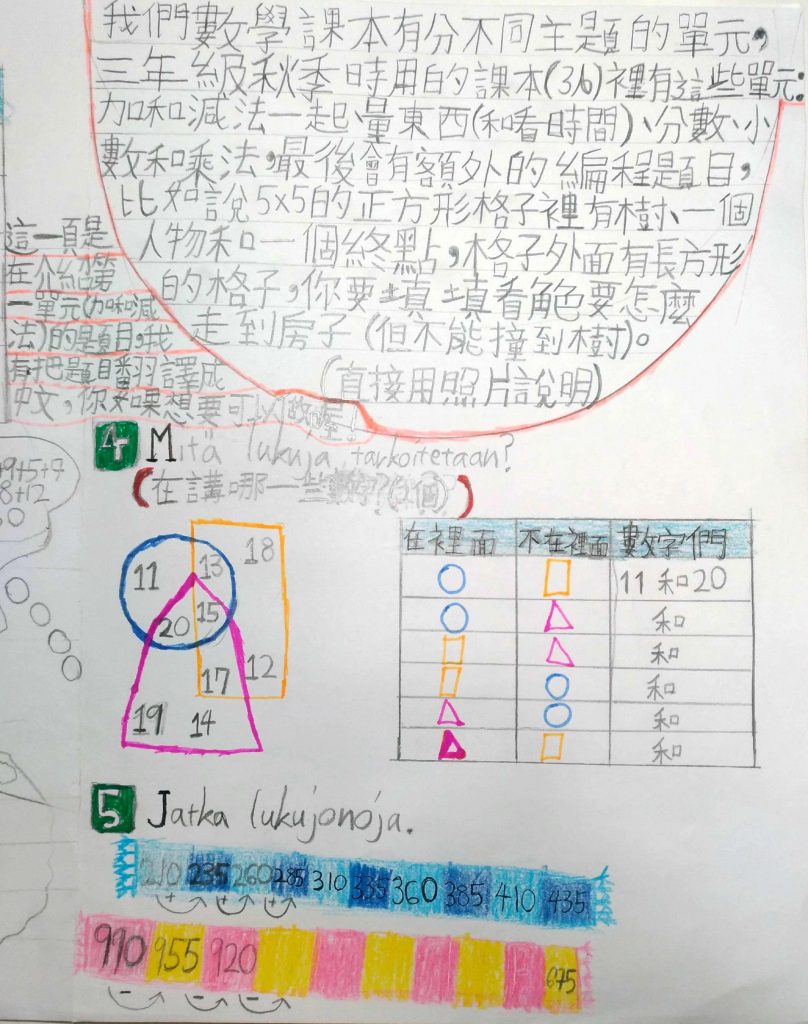 我們數學課本有分不同主題的單元，
三年級秋季時用的課本(3A)裡有這些單元：
加和減法一起、量東西(和看時間)、分數、小
數和乘法，最後會有額外的編程題目，
比如說5x5的正方形格子裡有樹、一個
人物和一個終點，格子外面有長方形
的格子，你要填填看角色要怎麼
走到房子(但不能撞到樹)。
(直接用照片說明)
這一頁是
在介紹第
一單元(加和減
法)的題目，我
有把題目翻譯成
中文，你如果想要可以做喔！
+9+5+7
8+12
4 Mitä lukuja tarkoitetaan?
(在講哪一些數字？(2個))
11 13 18
20 15
17 12
19 14
在裡面 不在裡面 數字們
11 和 20
和
和
和
和
和
5 Jatka lukujonoja.
210 235 260 285 310 335 360 385 410 435
+ + +
- - -
990 955 920 675
- - -